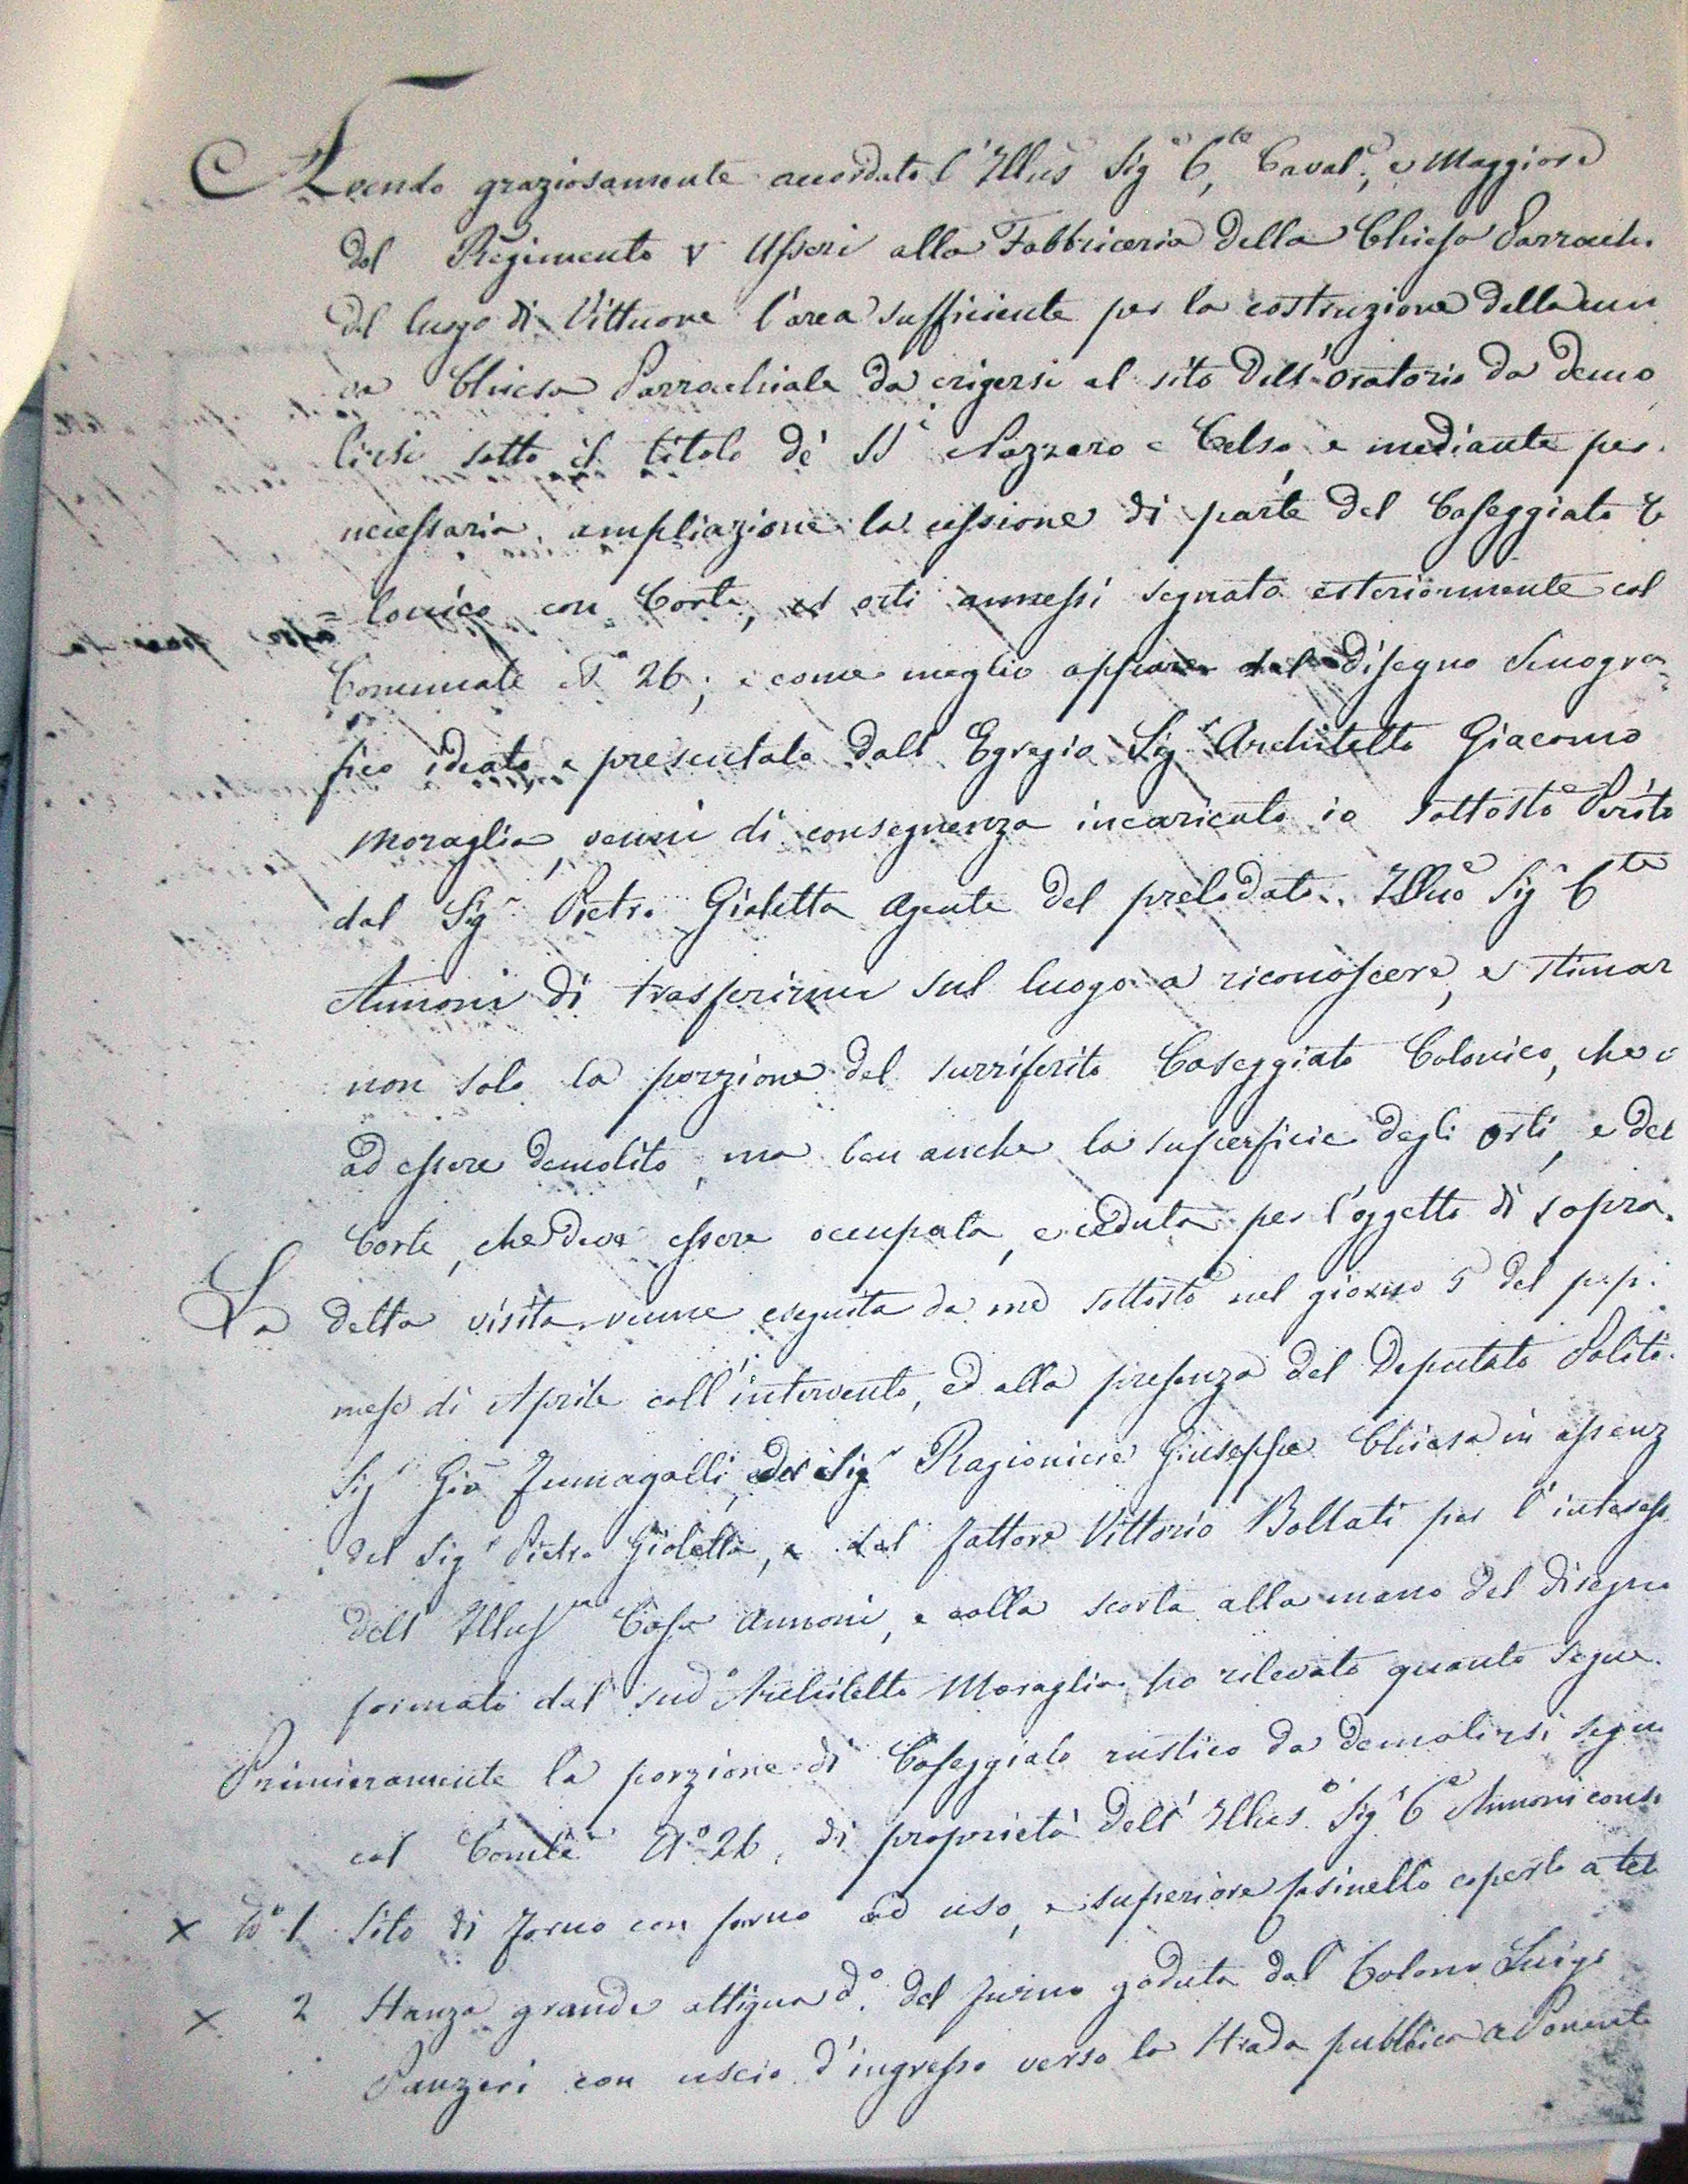 Avendo graziosamente accordato l'Illus Sig.e C.te, Caval.e, e Maggiore
del Regimento V Usseri alla Fabbriceria della Chiesa Parrochi
del luogo di Vittuone l'area sufficiente per la costruzione della nuo
va Chiesa Parrochiale da erigersi al sito dell'Oratorio da demo
lirsi sotto il titolo de' SS.i Nazzaro e Celso, e mediante per
necessaria ampliazione la cessione di parte del Caseggiato Co
=lonico con Corte, ed orti annessi segnato esteriormente col
Comunale N.o 26; e come meglio appare dal disegno Scenogra
fico ideato e presentato dall'Egregio Sig.r Architetto Giacomo
Moraglia, venni di conseguenza incaricato io sottosto Perito
dal Sig.r Pietro Gioletta Agente del prelodato Illmo Sig.r C.te
Annoni di trasferirmi sul luogo a riconoscere, e stimar
non solo la porzione del surriferito Caseggiato Colonico, che v
ad essere demolito, ma ben anche la superficie degli orti, e del
Corte, che deve essere occupata, e ceduta per l'oggetto di sopra.
La detta visita venne eseguita da me sottosto nel giorno 5 del p.p.
mese di Aprile coll'intervento, ed alla presenza del Deputato Politi
Sig.r Gio Fumagalli, del Sig.r Ragioniere Giuseppe Chiesa in assenz
del Sig.r Pietro Gioletta, e dal fattore Vittorio Bollati per l'interess
dell'Illus.ma Casa Annoni, e colla scorta alla mano del disegno
formato dal sud.o Architetto Moraglia ho rilevato quanto segue.
Primieramente la porzione di Caseggiato rustico da demolirsi segn
col Com.le N.o 26, di proprietà dell'Illus.o Sig.r C.e Annoni cons
x N.o 1 Sito di forno con forno ad uso, e superiore casinello coperto a tet
x 2 Stanza grande attigua d.o del forno goduta dal Colono Luigi
Panzeri con uscio d'ingresso verso la Strada pubblica a Ponente